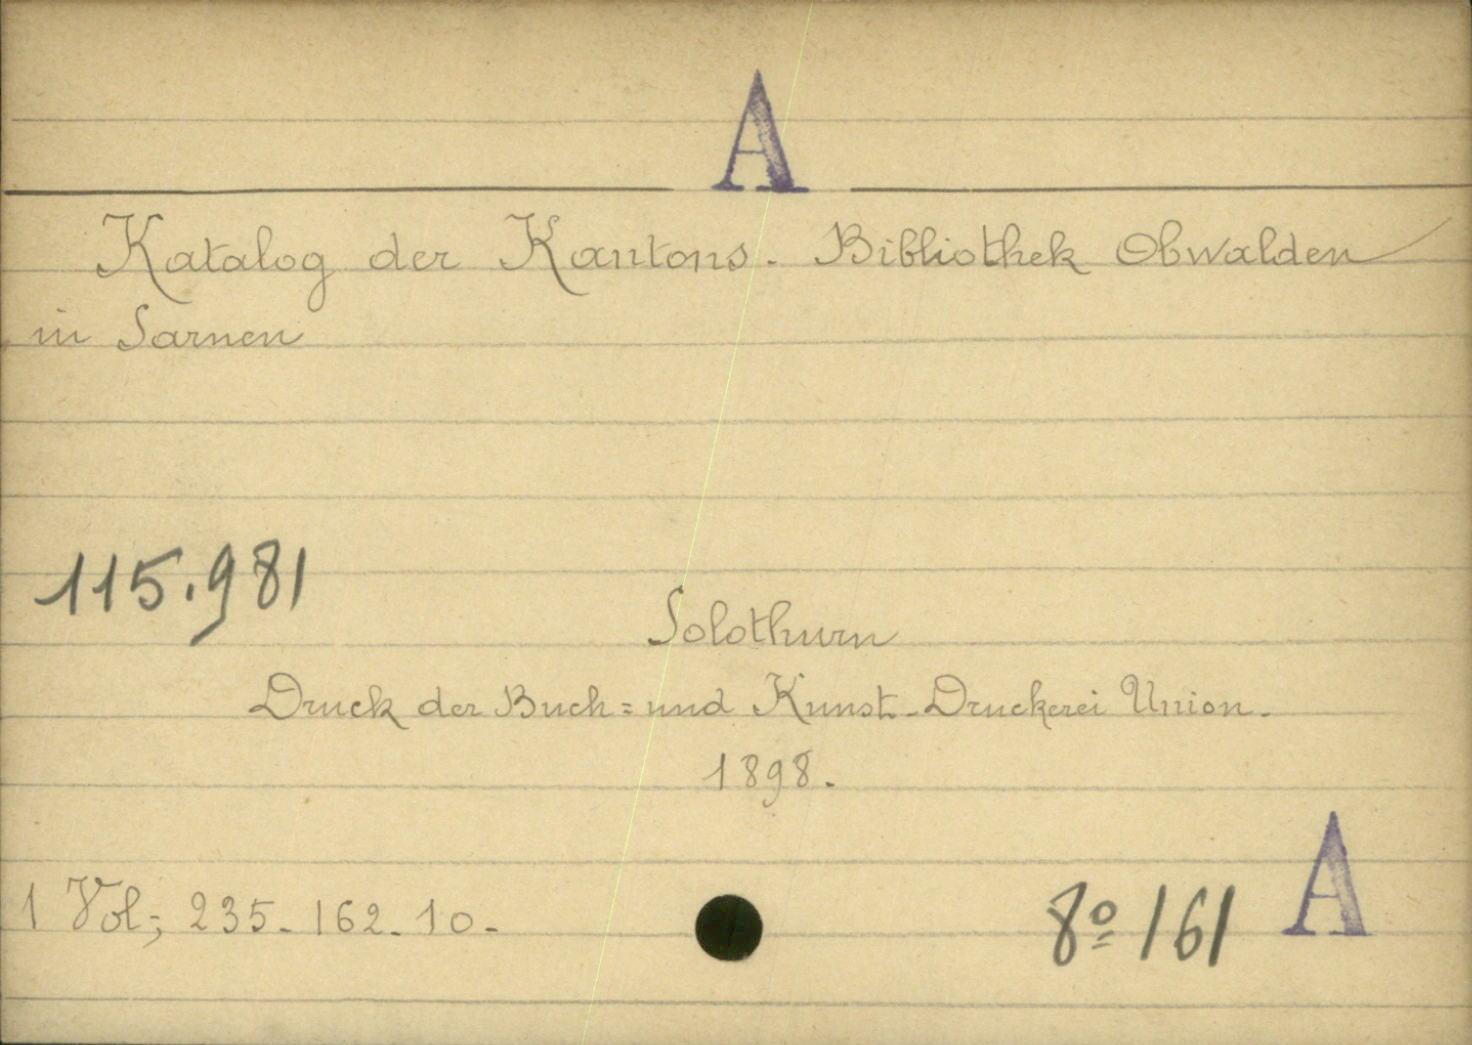 A
Katalog der Kantons. Bibliothek Obwalden
in Sarnen
115.981
Solothurn
Druck der Buch= und Kunst-Druckerei Union.
1898.
1 Vol; 235-162-10-
8º 161 A